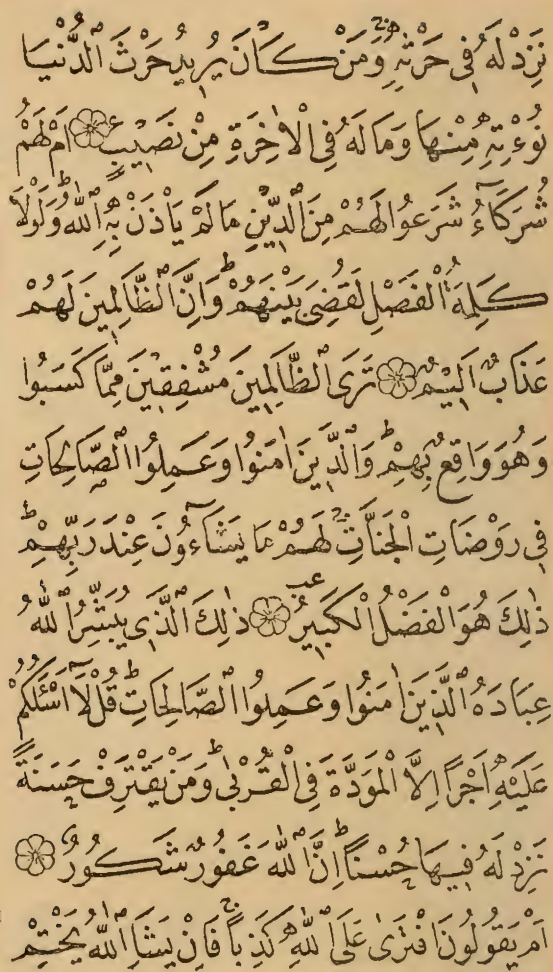 نَزِدْ لَهُ فِى حَرْثِهِ وَمَنْ كَانَ يُرِيدُ حَرْثَ الدُّنْيَا
نُؤْتِهِ مِنْهَا وَمَا لَهُ فِى الْاٰخِرَةِ مِنْ نَصِيبٍ ۝ اَمْ لَهُمْ
شُرَكَآءُ شَرَعُوا لَهُمْ مِنَ الدِّينِ مَا لَمْ يَأْذَنْ بِهِ اللّٰهُ وَلَوْلَا
كَلِمَةُ الْفَصْلِ لَقُضِىَ بَيْنَهُمْ وَاِنَّ الظَّالِمِينَ لَهُمْ
عَذَابٌ اَلِيمٌ ۝ تَرَى الظَّالِمِينَ مُشْفِقِينَ مِمَّا كَسَبُوا
وَهُوَ وَاقِعٌ بِهِمْ وَالَّذِينَ اٰمَنُوا وَعَمِلُوا الصَّالِحَاتِ
فِى رَوْضَاتِ الْجَنَّاتِ لَهُمْ مَا يَشَآءُونَ عِنْدَ رَبِّهِمْ
ذٰلِكَ هُوَ الْفَضْلُ الْكَبِيرُ ۝ ذٰلِكَ الَّذِى يُبَشِّرُ اللّٰهُ
عِبَادَهُ الَّذِينَ اٰمَنُوا وَعَمِلُوا الصَّالِحَاتِ قُلْ لَآ اَسْـَٔلُكُمْ
عَلَيْهِ اَجْرًا اِلَّا الْمَوَدَّةَ فِى الْقُرْبٰى وَمَنْ يَقْتَرِفْ حَسَنَةً
نَزِدْ لَهُ فِيهَا حُسْنًا اِنَّ اللّٰهَ غَفُورٌ شَكُورٌ ۝
اَمْ يَقُولُونَ افْتَرٰى عَلَى اللّٰهِ كَذِبًا فَاِنْ يَشَاِ اللّٰهُ يَخْتِمْ